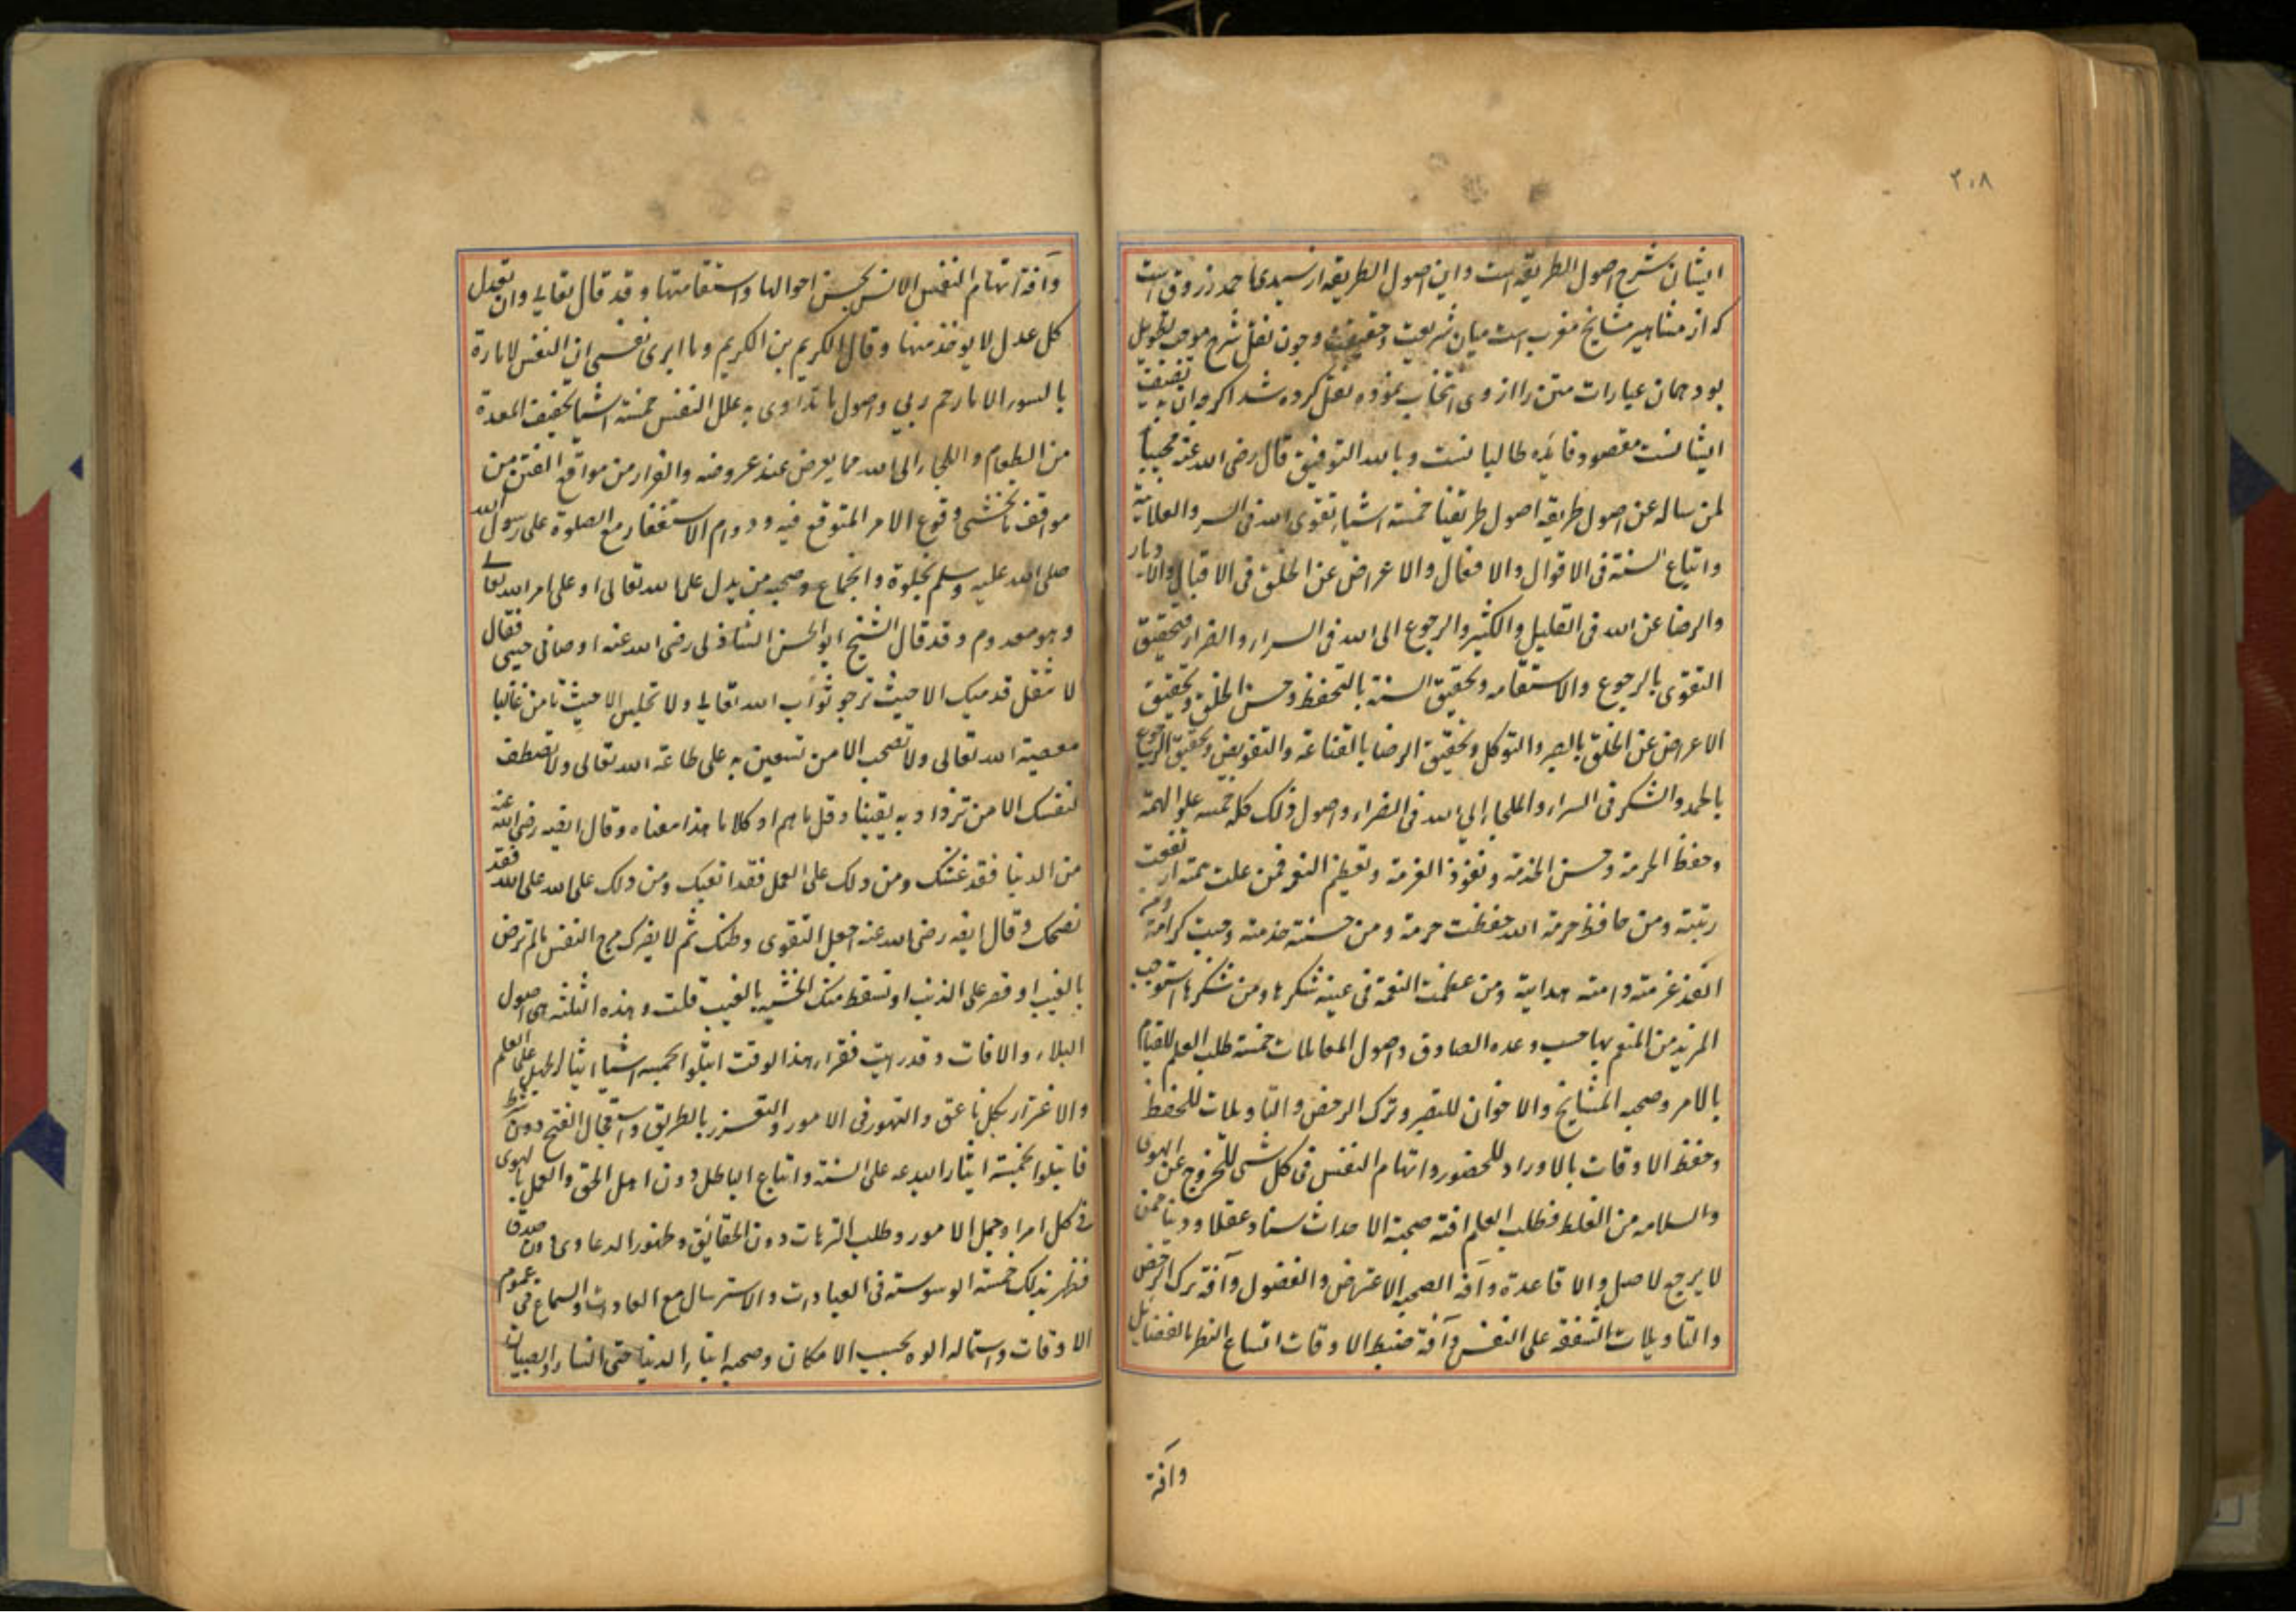 ۲۰۸
ایشان شرح اصول الطریقه است و این اصول الطریقه از سیدی احمد زروق است
که از مشاهیر مشایخ مغرب است میان شریعت و حقیقت و چون نقل شرح موجب تطویل
بود همان عبارات متن را از وی انتخاب نموده نقل کرده شد اکر چه این به تصنیف
ایشانست مقصود فایده طالبانست و بالله التوفیق قال رضی الله عنه مجیبا
لمن ساله عن اصول طریقه اصول طریقنا خمسة اشیاء تقوی الله فی السر والعلانیة
واتباع السنة فی الاقوال والافعال والاعراض عن الخلق فی الاقبال والادبار
والرضا عن الله فی القلیل والکثیر والرجوع الی الله فی السراء والضراء فتحقیق
التقوی بالرجوع والاستقامه وتحقیق السنة بالتحفظ وحسن الخلق وتحقیق
الاعراض عن الخلق بالصبر والتوکل وتحقیق الرضا بالقناعة والتفویض وتحقیق الرجوع
بالحمد والشکر فی السراء والملجاء الی الله فی الضراء واصول ذلک کله خمسه علو الهمة
وحفظ الحرمة وحسن الخدمة ونفوذ العزمة وتعظیم النعمة فمن علت همته ارتفعت
رتبته ومن حافظ حرمة الله حفظت حرمة ومن حسنت خدمته وجبت کرامته ومن
انفذ عزمته دامت هدایته ومن عظمت النعمة فی عینه شکرها ومن شکرها استوجب
المزید من المنعم بها حسب وعده الصادق واصول المعاملات خمسة طلب العلم للقیام
بالامر وصحبه المشایخ والاخوان للتبصر وترک الرخص والتاویلات للحفظ
وحفظ الاوقات بالاوراد للحضور واتهام النفس فی کل شی للخروج عن الهوی
والسلامه من الغلط فطلب العلم افته صحبة الاحداث سنا وعقلا ودینا ممن
لا یرجع لاصل ولا قاعدة وآفة الصحبه الاعتراض والفضول وآفة ترک الرخص
والتاویلات الشفقة علی النفس وآفة ضبط الاوقات اتساع النظر بالفضایل
وآفة
وآفة اتهام النفس الانس بحسن احوالها واستقامتها وقد قال تعالی وان تعدل
کل عدل لا یوخذ منها وقال الکریم بن الکریم وما ابری نفسی ان النفس لامارة
بالسوء الا ما رحم ربی واصول ما تداوی به علل النفس خمسة اشیا تخفیف المعدة
من الطعام واللجاء الی الله مما یعرض عند عروضه والفرار من مواقع الفتن من
مواقف ما یخشی وقوع الامر المتوقع فیه ودوام الاستغفار مع الصلوة علی رسول الله
صلی الله علیه وسلم بخلوة واجتماع وصحبه من یدل علی الله تعالی او علی امر الله تعالی
وهو معدوم وقد قال الشیخ ابو الحسن الشاذلی رضی الله عنه اوصانی حبیبی فقال
لا تنقل قدمیک الا حیث ترجو ثواب الله تعالی ولا تجلس الا حیث تامن غالبا
معصیة الله تعالی ولا تصحب الا من تستعین به علی طاعة الله تعالی ولا تصطف
لنفسک الا من تزداد به یقینا وقل ما هم او کلاما هذا معناه وقال ایضه رضی الله عنه
من الدنیا فقد غشک ومن دلک علی العمل فقد اتعبک ومن دلک علی الله فقد
نصحک وقال ایضه رضی الله عنه اجعل التقوی وطنک ثم لا یضرک مرح النفس ما لم ترض
بالعیب او تصر علی الذنب او تسقط منک الخشیه بالغیب قلت وهذه الثلثه هی اصول
البلاء والافات وقد رایت فقراء هذا الوقت ابتلوا بخمسه اشیا ایثار الجهل علی العلم
والاغترار بکل ناعق والتهور فی الامور والتعزز بالطریق واستعجال الفتح دون شرط
فابتلوا بخمسة ایثار البدعه علی السنة واتباع الباطل دون اهل الحق والعمل بالهوی
فی کل امر او جمل الامور وطلب الترهات دون الحقائق وظهور الدعاوی دون صدق
فظهر بذلک خمسة الوسوسة فی العبادات والاسترسال مع العادات والسماع فی عموم
الاوقات واستماله الوجوه بحسب الامکان وصحبه ابناء الدنیا حتی النساء والصبیان